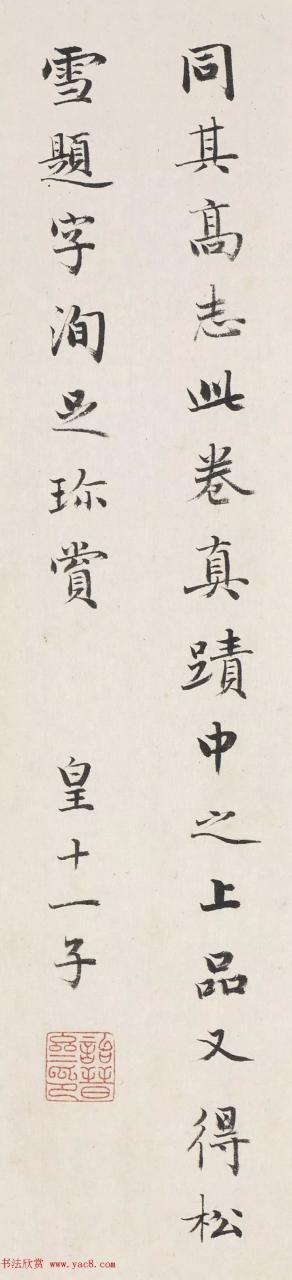 同其高志此卷真蹟中之上品又得松
雪題字洵足珎賞
皇十一子
詒晉齋印
书法欣赏 www.yac8.com